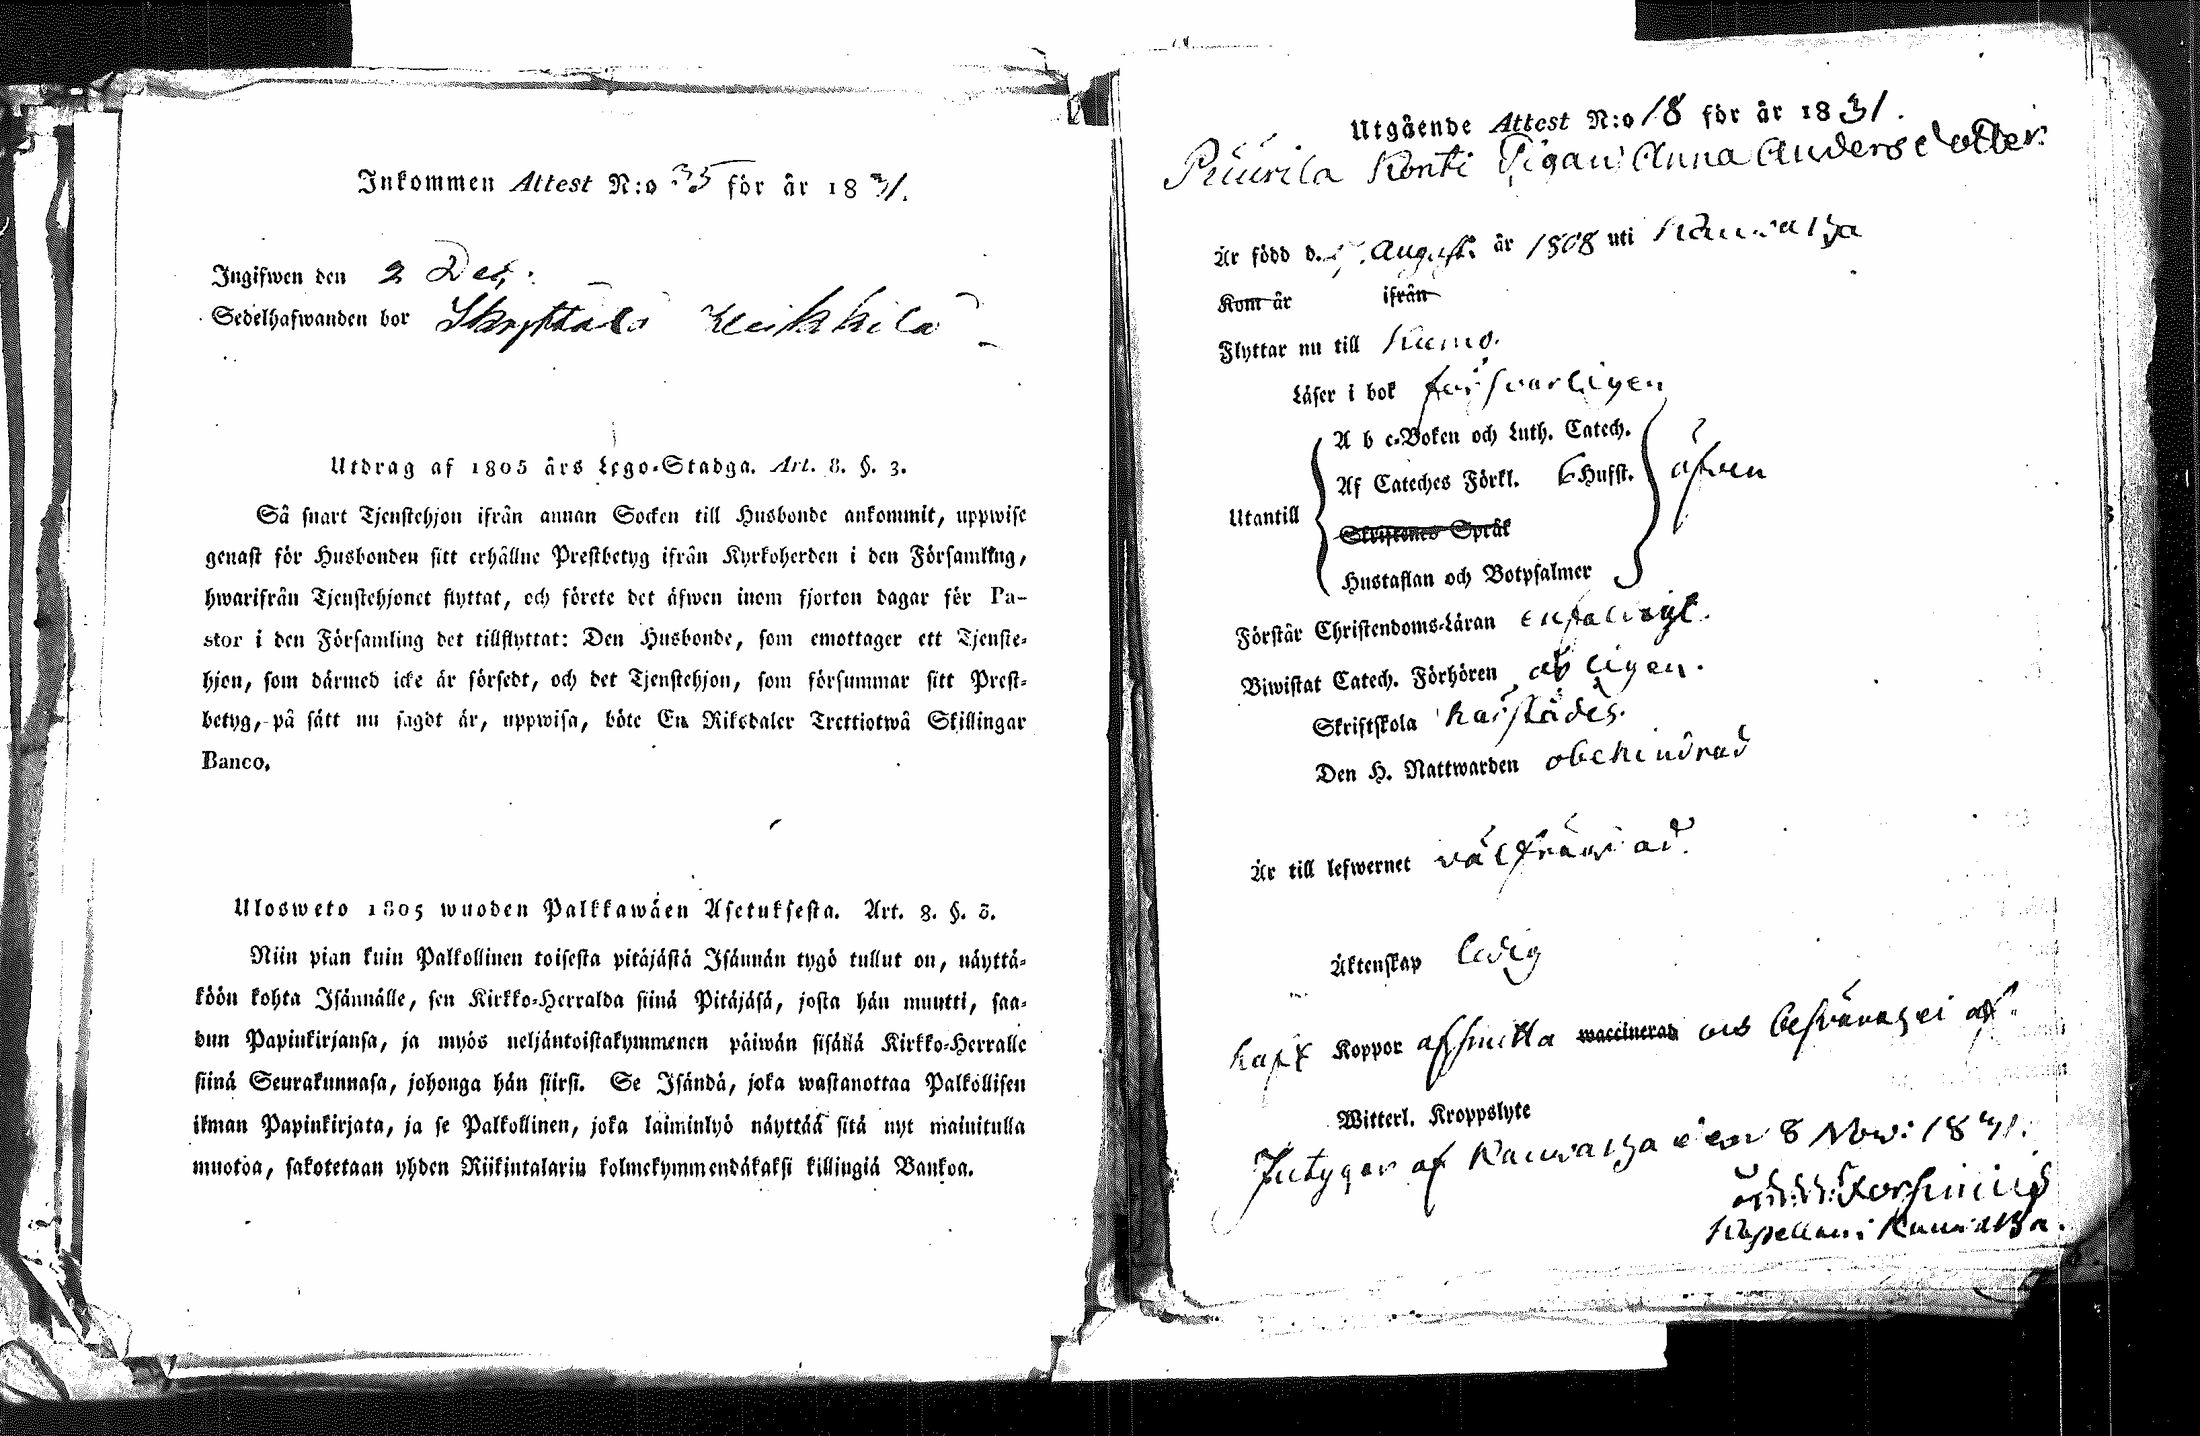 Inkommen Attest N:o 35 för år 1831.
Ingifwen den 2 Dec:
Sedelhafwanden bor Skyttälä Heikkilä
Utdrag af 1805 års Lego-Stadga. Art. 8. §. 3.
Så snart Tjenstehjon ifrån annan Socken till Husbonde ankommit, uppwise
genast för Husbonden sitt erhållne Prestbetyg ifrån Kyrkoherden i den Församling,
hwarifrån Tjenstehjonet flyttat, och förete det äfwen inom fjorton dagar för Pa-
stor i den Församling det tillflyttat: Den Husbonde, som emottager ett Tjenste-
hjon, som därmed icke är försedt, och det Tjenstehjon, som försummar sitt Prest-
betyg, på sätt nu sagdt är, uppwisa, böte En Riksdaler Trettiotwå Skillingar
Banco.
Ulosweto 1805 wuoden Palkkawäen Asetuksesta. Art. 8. §. 3.
Niin pian kuin Palkollinen toisesta pitäjästä Isännän tygö tullut on, näyttä-
köön kohta Isännälle, sen Kirkko-Herralda siinä Pitäjäsä, josta hän muutti, saa-
dun Papinkirjansa, ja myös neljäntoistakymmenen päiwän sisällä Kirkko-Herralle
siinä Seurakunnasa, johonga hän siirsi. Se Isändä, joka wastanottaa Palkollisen
ilman Papinkirjata, ja se Palkollinen, joka laiminlyö näyttää sitä nyt mainitulla
muotoa, sakotetaan yhden Riikintalarin kolmekymmendäkaksi killingiä Bankoa.
Utgående Attest N:o 18 för år 1831.
Puurila Konti Pigan Anna Andersdotter
Är född d. August. år 1808 uti Kauvatza
Kom år ifrån
Flyttar nu till Kumo.
Läser i bok försvarligen
A b c-Boken och Luth. Catech.
Af Cateches Förkl. 6 Hufst. äfven
Utantill
Skriftenes Språk
Hustaflan och Botpsalmer
Förstår Christendoms-Läran enfaldigt.
Biwistat Catech. Förhören årligen.
Skriftskola härstädes.
Den H. Nattwarden obehindrad
Är till lefwernet välfräjdad.
Äktenskap ledig
haft Koppor af smitta waccinerad och besväras ej af
Witterl. Kroppslyte
Intygar af Kauvatza den 8 Nov: 1831.
Forsenius
Kapellan i Kauvatza.